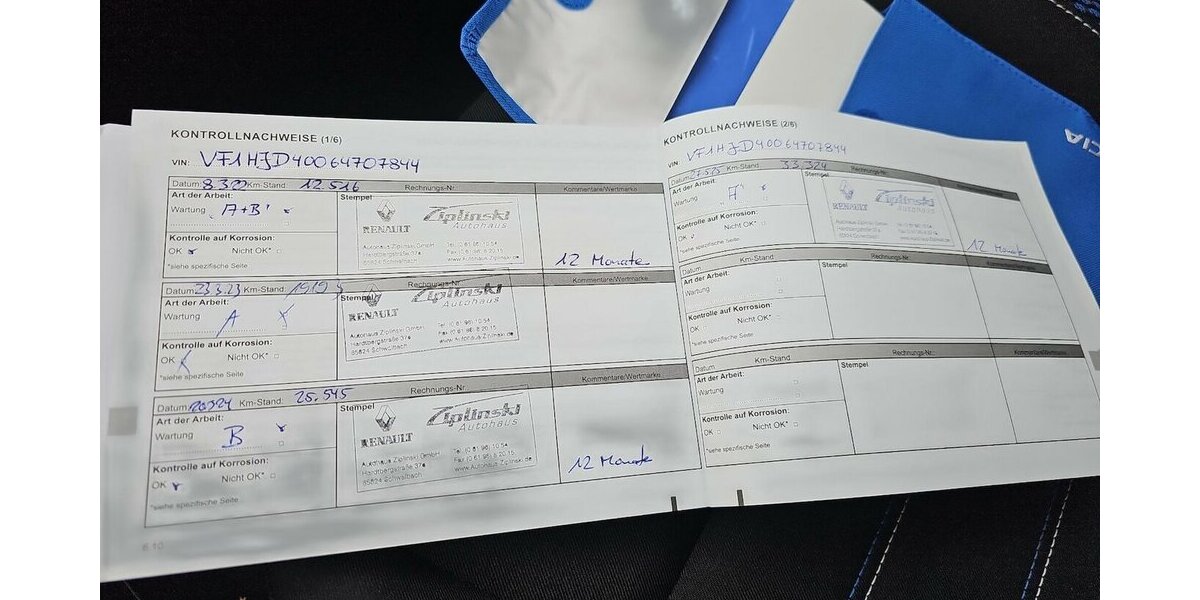 CIA
KONTROLLNACHWEISE (1/6)
VIN: VF1HJD40064707844
Datum: 8.3.22 Km-Stand: 12.516 Rechnungs-Nr. Kommentare/Wertmarke
Art der Arbeit: Stempel
Wartung "A+B"
RENAULT Ziplinski Autohaus
Kontrolle auf Korrosion:
OK Nicht OK*
*siehe spezifische Seite
Autohaus Ziplinski GmbH Tel. (0 61 96) 10 54
Hardtbergstraße 37a Fax (0 61 96) 8 20 15
65824 Schwalbach www.Autohaus-Ziplinski.de
12 Monate
Datum: 23.3.23 Km-Stand: Rechnungs-Nr. Kommentare/Wertmarke
Art der Arbeit: Stempel
Wartung A
RENAULT Ziplinski Autohaus
Kontrolle auf Korrosion:
OK Nicht OK*
*siehe spezifische Seite
Autohaus Ziplinski GmbH Tel. (0 61 96) 10 54
Hardtbergstraße 37a Fax (0 61 96) 8 20 15
65824 Schwalbach www.Autohaus-Ziplinski.de
Datum: Km-Stand: 25.545 Rechnungs-Nr.: Kommentare/Wertmarke
Art der Arbeit: Stempel
Wartung B
RENAULT Ziplinski Autohaus
Kontrolle auf Korrosion:
OK Nicht OK*
*siehe spezifische Seite
Autohaus Ziplinski GmbH Tel. (0 61 96) 10 54
Hardtbergstraße 37a Fax (0 61 96) 8 20 15
65824 Schwalbach www.Autohaus-Ziplinski.de
12 Monate
6.10
KONTROLLNACHWEISE (2/6)
VIN: VF1HJD40064707844
Datum: Km-Stand: 33.324 Rechnungs-Nr.
Art der Arbeit: Stempel
Wartung "A"
RENAULT Ziplinski Autohaus
Kontrolle auf Korrosion:
OK Nicht OK*
*siehe spezifische Seite
Autohaus Ziplinski GmbH
12 Monate
Datum: Km-Stand Rechnungs-Nr.
Art der Arbeit: Stempel
Wartung
Kontrolle auf Korrosion:
OK Nicht OK*
*siehe spezifische Seite
Datum: Km-Stand Rechnungs-Nr.: Kommentare/Wertmarke
Art der Arbeit: Stempel
Wartung
Kontrolle auf Korrosion:
OK Nicht OK*
*siehe spezifische Seite